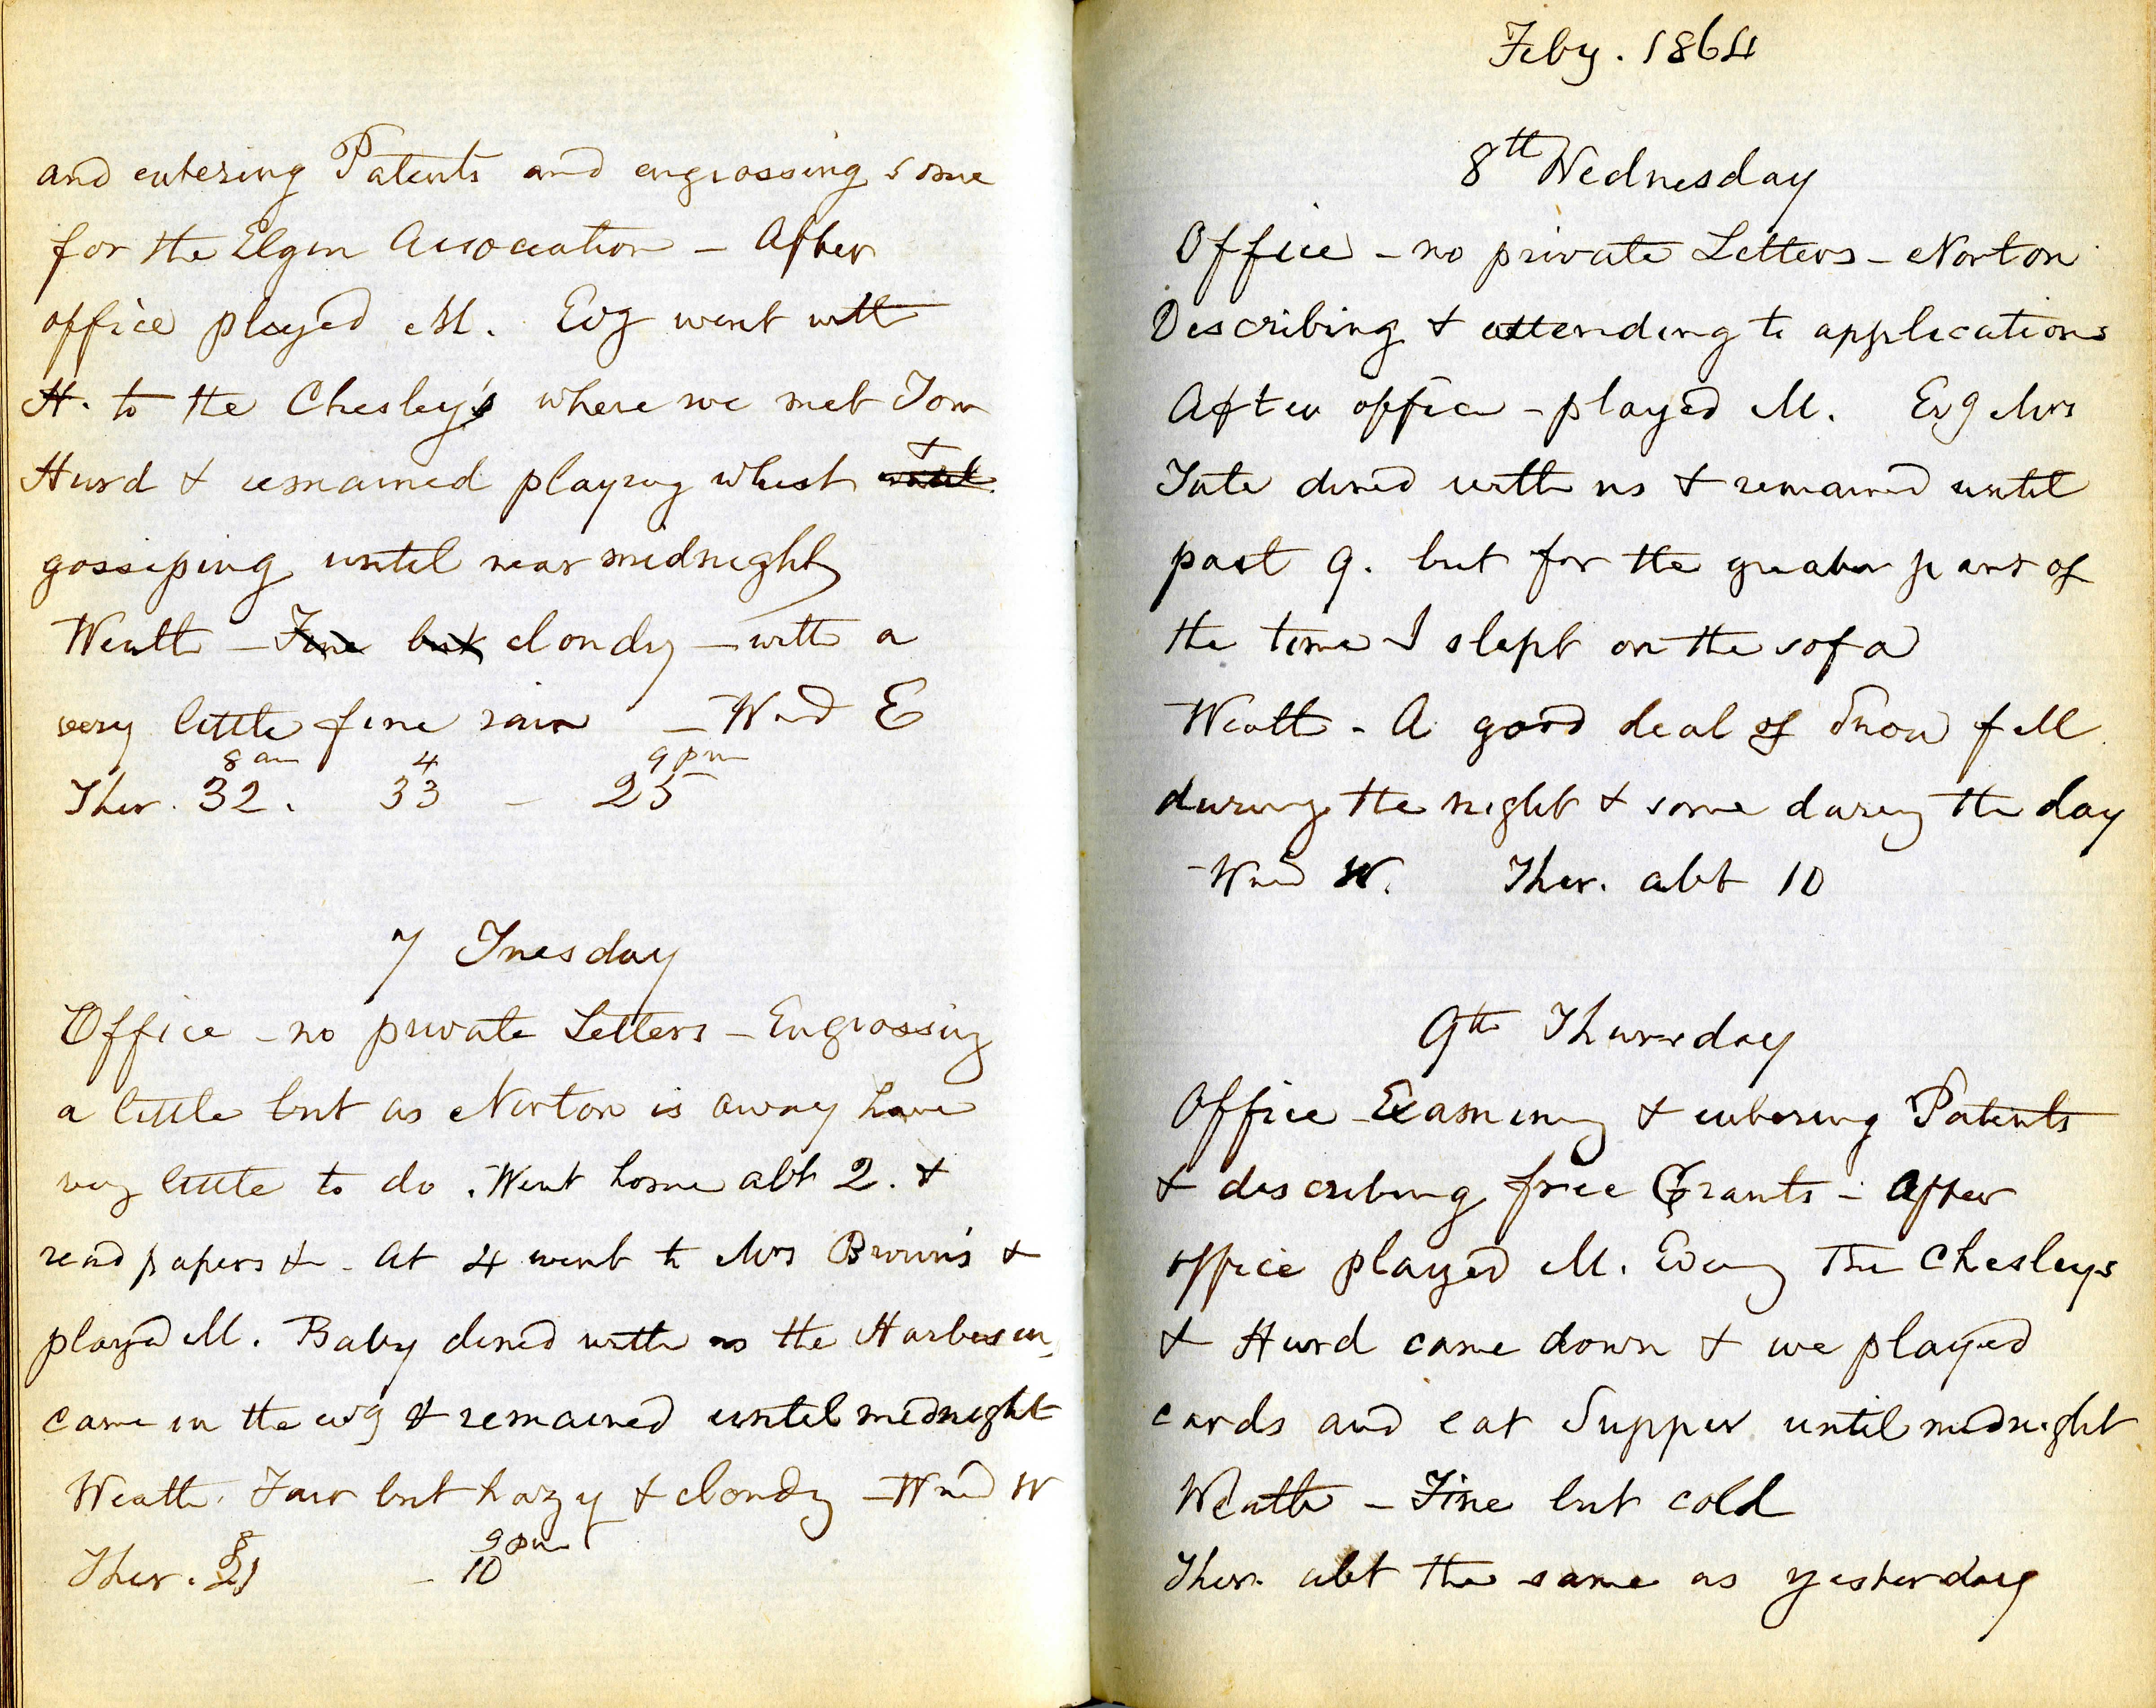 and entering Patents and engrossing some
for the Elgin Association – After
office played M. Evg went with
H. to the Chesley's where we met Tom
Hurd & remained playing whist &
gossiping until near midnight
Weath – Fine but cloudy – with a
very little fine rain – Wind E
8 am 4 9 pm
Ther. 32. 33 – 25
7 Tuesday
Office – no private Letters – Engrossing
a little but as Norton is away have
very little to do. Went home abt 2. &
read papers &c – At 4 went to Mrs Brown's &
played M. Baby dined with us the
came in the evg & remained until midnight
Weath. Fair but hazy & cloudy – Wind W
8 9 pm
Ther. 21 – 10
Feby. 1864
8th Wednesday
Office – no private Letters – Norton
Describing & attending to applications
After office – played M. Evg Mrs
Tate dined with us & remained until
past 9. but for the greater part of
the time I slept on the sofa
Weath – A good deal of Snow fell
during the night & some during the day
– Wind W. Ther. abt 10
9th Thursday
Office – Examining & entering Patents
& describing free Grants – After
office played M. Evening The Chesleys
& Hurd came down & we played
cards and eat Supper until midnight
Weath – Fine but cold
Ther. abt the same as yesterday